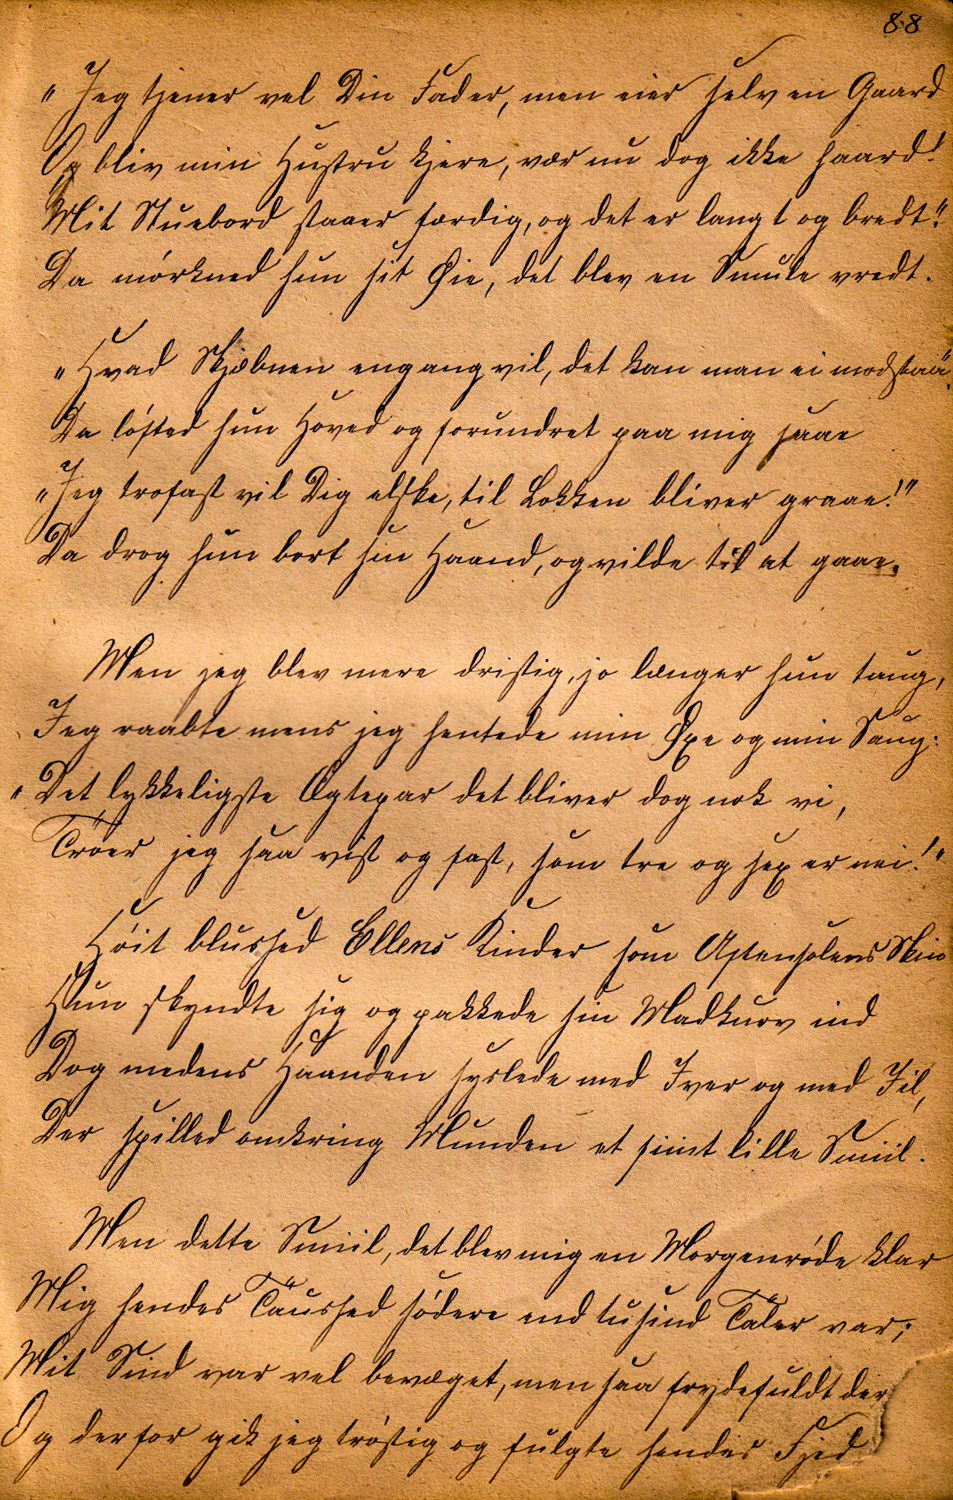 88
„Jeg tjener vel Din Fader, men eier selv en Gaard
Og bliv min Hustru kjere, vær nu dog ikke haard!
Mit Stuebord staaer færdig, og det er langt og bredt."
Da mörkned hun sit Øie, det blev en Smule vredt.
„Hvad Skjæbnen engang vil, det kan man ei modstaa".
Da löfted hun Hoved og forundret paa mig saae
„Jeg trofast vil Dig elske, til Lokken bliver graae!"
Da drog hun bort sin Haand, og vilde til at gaae.
Men jeg blev mere dristig, jo længer hun taug,
Jeg raabte mens jeg hentede min Øxe og min Saug:
„Det lykkeligste Ægtepar det bliver dog nok vi,
Tröer jeg saa vist og fast, som tre og sex er nei!"
Höit blussed Ellens Kinder som Aftensolens Skin
Hun skyndte sig og pakkede sin Madkurv ind
Dog medens Haanden syslede med Iver og med Fil,
Der spilled omkring Munden et fiint lille Smiil.
Men dette Smiil, det blev mig en Morgenröde klar
Mig hendes Taushed södere end tusind Taler var;
Mit Sind var vel bevæget, men saa frydefuldt der
Og derfor gik jeg tröstig og fulgte hendes Fjed